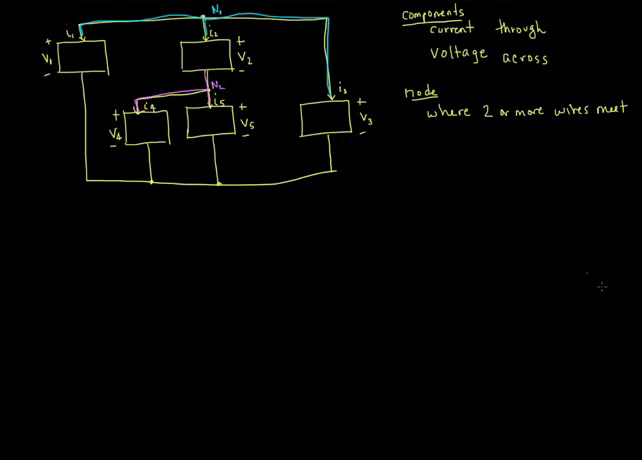 N₁
i₁
i₂
+
V₁
-
+
V₂
-
N₂
i₃
i₄
i₅
+
V₄
-
+
V₅
-
+
V₃
-
Components
Current through
Voltage across
node
where 2 or more wires meet